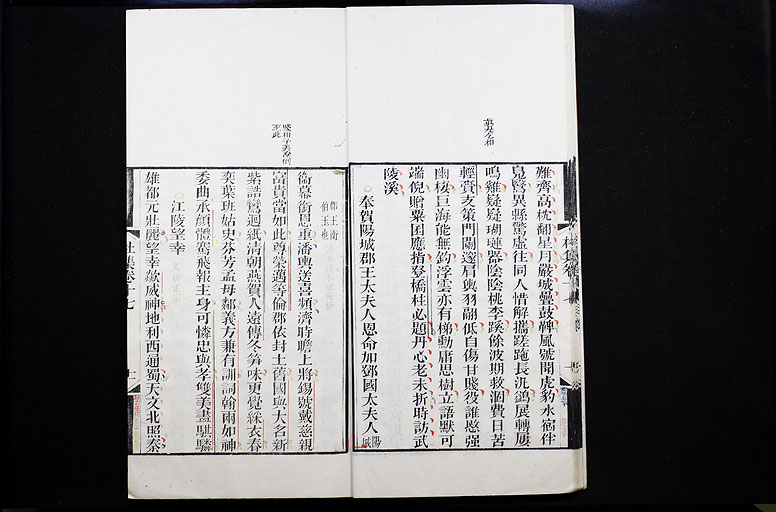 難齊高枕翻星月嚴城疊鼓鞞風號聞虎豹水宿伴
鳧鷖異縣驚虛往同人惜解攜蹉跎長汎鷁展轉屢
鳴雞嶷嶷瑚璉器陰陰桃李蹊餘波期救涸費日苦
輕齎支策門闌邃肩輿羽翮低自傷甘賤役誰愍强
幽棲巨海能無釣浮雲亦有梯動庸思樹立語默可
端倪贈粟囷應指登橋柱必題丹心老未折時訪武
陵溪
奉賀陽城郡王太夫人恩命加鄧國太夫人
陽
鄧王衛
伯玉也
衞幕銜恩重潘輿送喜頻濟時瞻上將錫號戴慈親
富貴當如此尊榮邁等倫郡依封土舊國與大名新
紫誥鸞迴紙清朝燕賀人遠傳冬筍味更覺綵衣春
奕葉班姑史芬芳孟母鄰義方兼有訓詞翰兩如神
委曲承顏體鶱飛報主身可憐忠與孝雙美畫騏驎
江陵望幸
雄都元壯麗望幸歘威神地利西通蜀天文北照秦
杜集卷十七